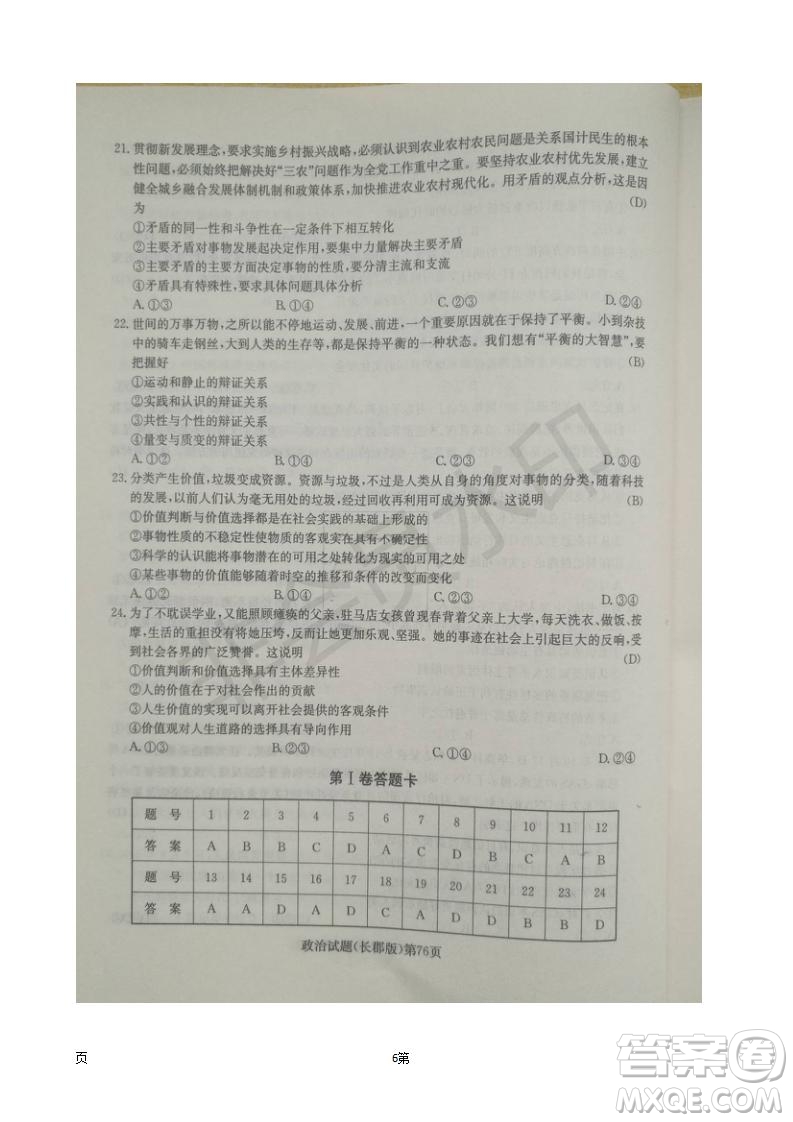 21. 贯彻新发展理念,要求实施乡村振兴战略,必须认识到农业农村农民问题是关系国计民生的根本
性问题,必须始终把解决好“三农”问题作为全党工作重中之重。要坚持农业农村优先发展,建立
健全城乡融合发展体制机制和政策体系,加快推进农业农村现代化。用矛盾的观点分析,这是因
为 (D)
①矛盾的同一性和斗争性在一定条件下相互转化
②主要矛盾对事物发展起决定作用,要集中力量解决主要矛盾
③矛盾的主要方面决定事物的性质,要分清主流和支流
④矛盾具有特殊性,要求具体问题具体分析
A.①③ B.①④ C.②③ D.②④
22. 世间的万事万物,之所以能不停地运动、发展、前进,一个重要原因就在于保持了平衡。小到杂技
中的骑车走钢丝,大到人类的生存等,都是保持平衡的一种状态。我们想有“平衡的大智慧”,要
把握好 (B)
①运动和静止的辩证关系
②实践和认识的辩证关系
③共性与个性的辩证关系
④量变与质变的辩证关系
A.①② B.①④ C.②③ D.③④
23. 分类产生价值,垃圾变成资源。资源与垃圾,不过是人类从自身的角度对事物的分类,随着科技
的发展,以前人们认为毫无用处的垃圾,经过回收再利用可成为资源。这说明 (B)
①价值判断与价值选择都是在社会实践的基础上形成的
②事物性质的不稳定性使物质的客观实在具有不确定性
③科学的认识能将事物潜在的可用之处转化为现实的可用之处
④某些事物的价值能够随着时空的推移和条件的改变而变化
A.①② B.①④ C.②③ D.③④
24. 为了不耽误学业,又能照顾瘫痪的父亲,驻马店女孩曾现春背着父亲上大学,每天洗衣、做饭、按
摩,生活的重担没有将她压垮,反而让她更加乐观、坚强。她的事迹在社会上引起巨大的反响,受
到社会各界的广泛赞誉。这说明 (D)
①价值判断和价值选择具有主体差异性
②人的价值在于对社会作出的贡献
③人生价值的实现可以离开社会提供的客观条件
④价值观对人生道路的选择具有导向作用
A.①③ B.②③ C.①④ D.②④
第Ⅰ卷答题卡
题 号 1 2 3 4 5 6 7 8 9 10 11 12
答 案 A B B C D A C D B C A B
题 号 13 14 15 16 17 18 19 20 21 22 23 24
答 案 A A D A D C A D D B B D
政治试题(长郡版)第76页
页 6第
答案圈
MXQE.COM